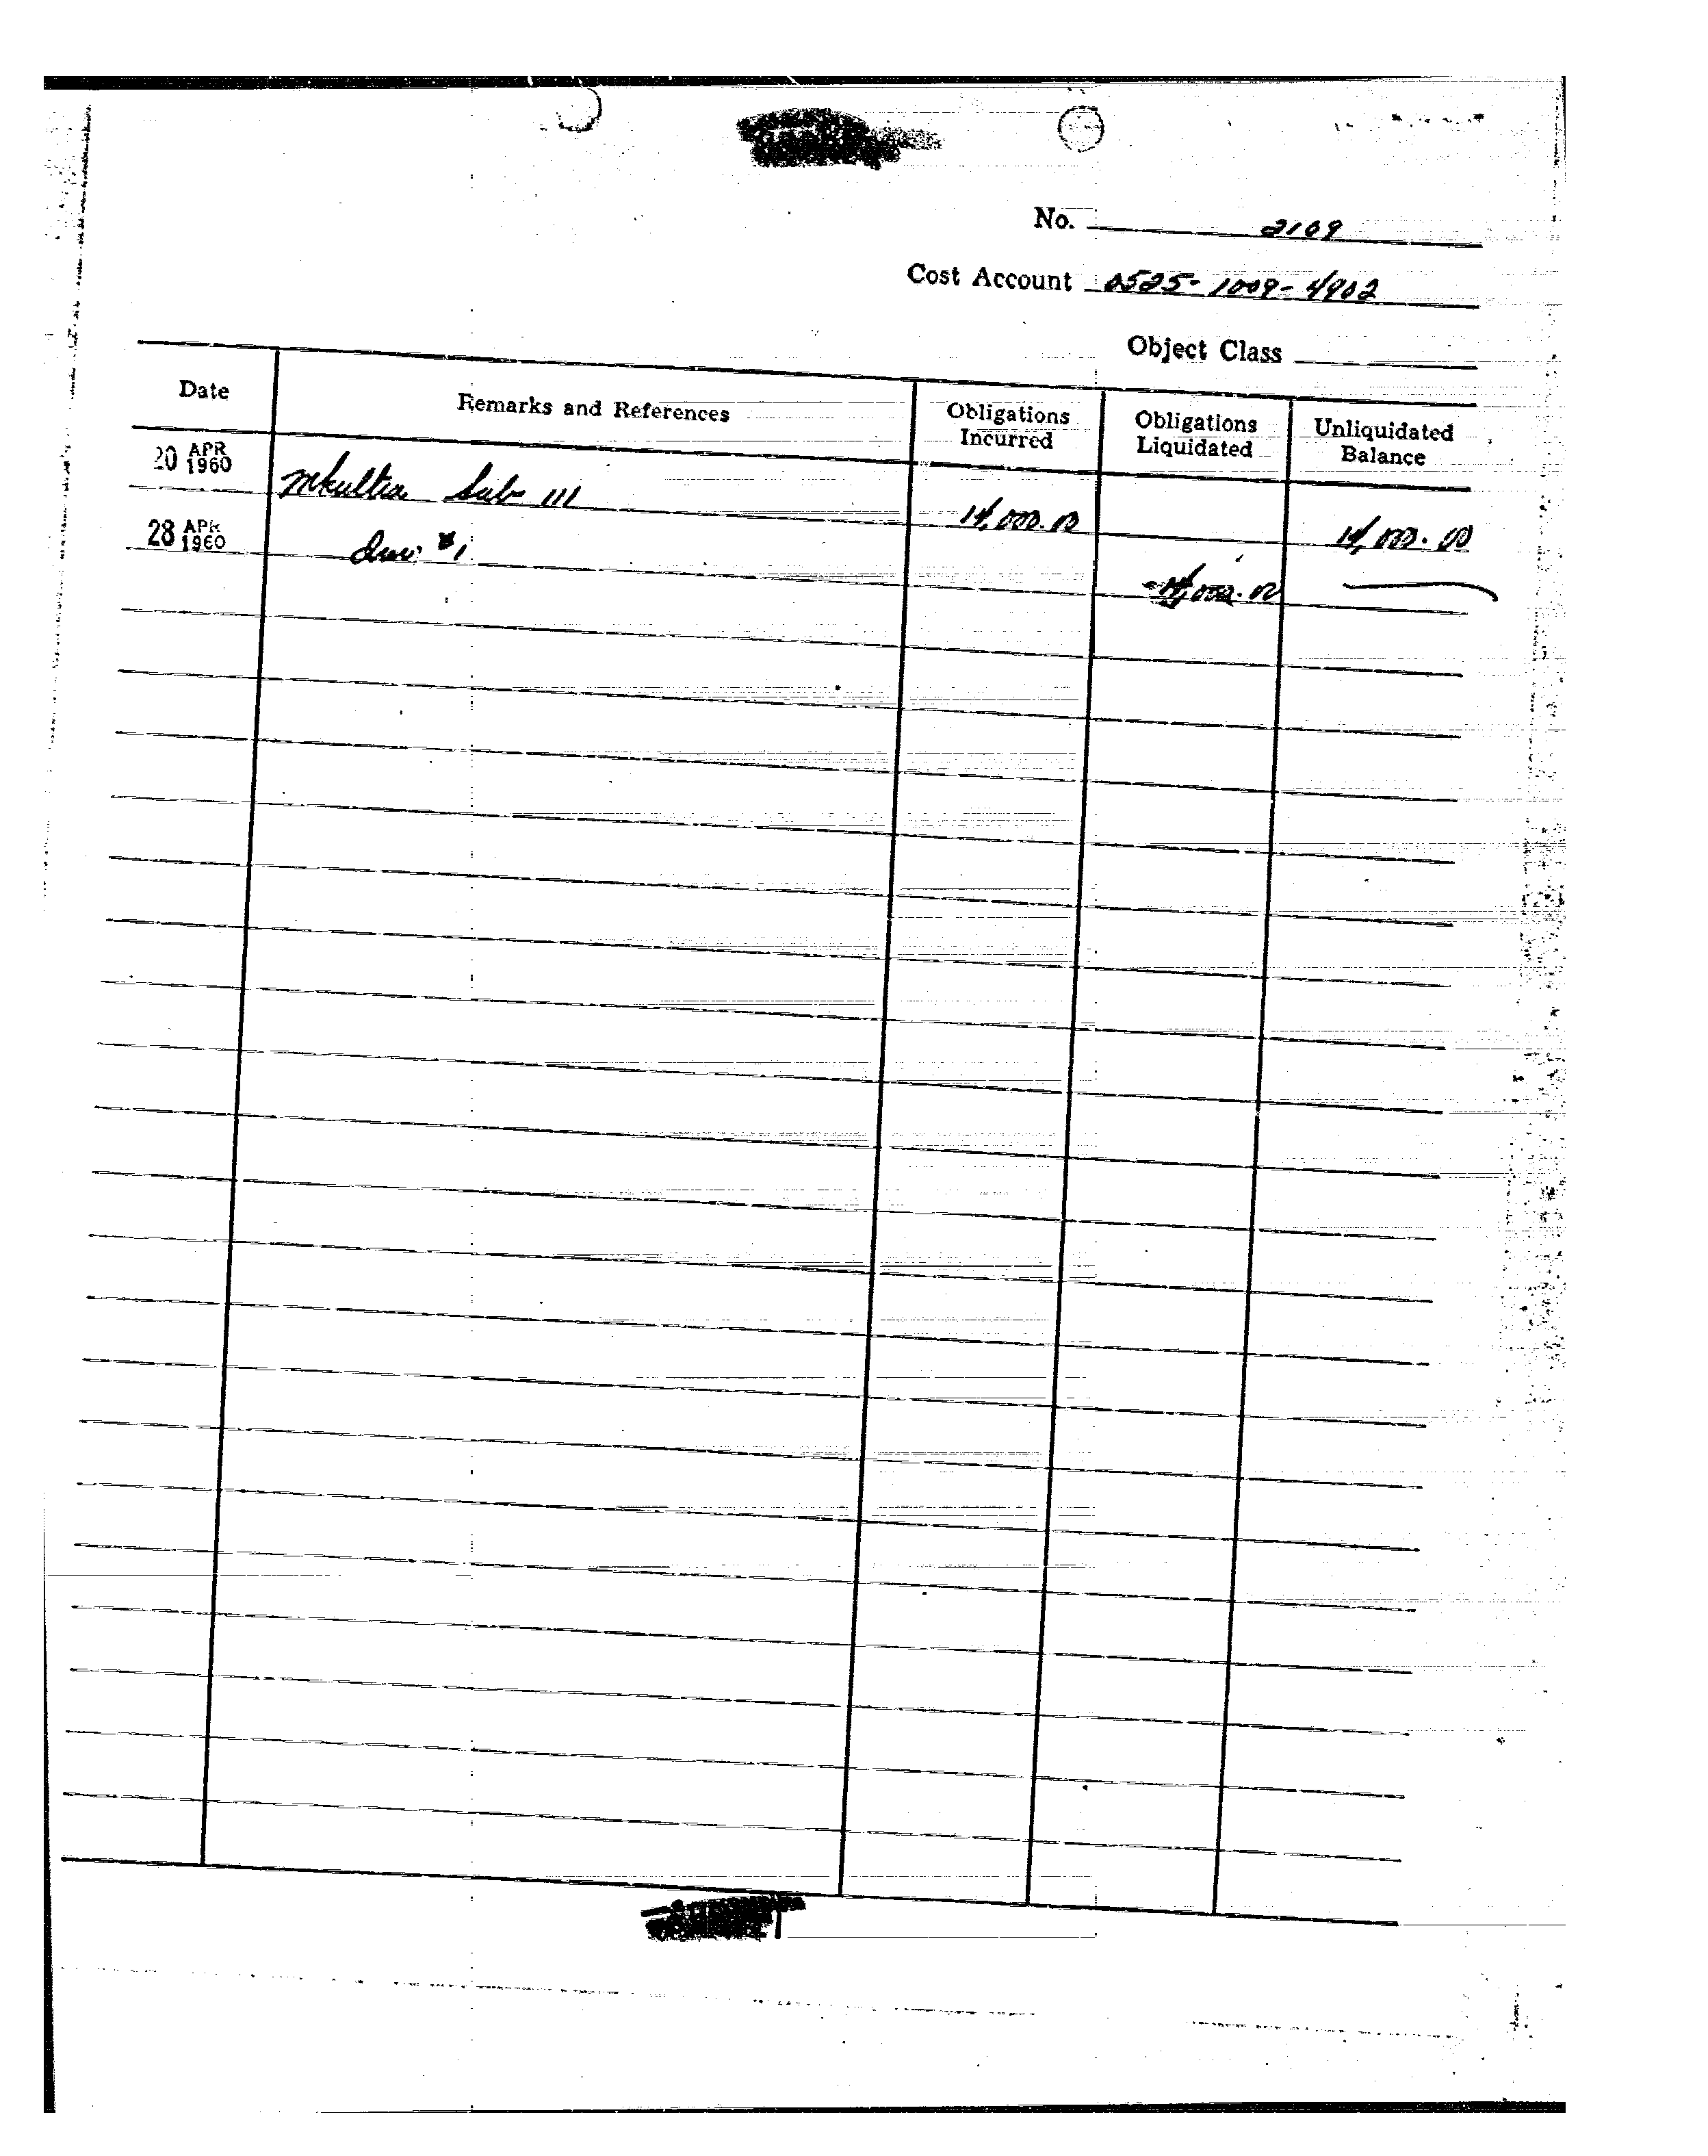 No. 2109
Cost Account 0525-1009-4902
Object Class
Date Remarks and References Obligations Incurred Obligations Liquidated Unliquidated Balance
20 APR 1960 Mkultra Sub 111 14,000.00 14,000.00
28 APR 1960 Inv. #1 -14,000.00